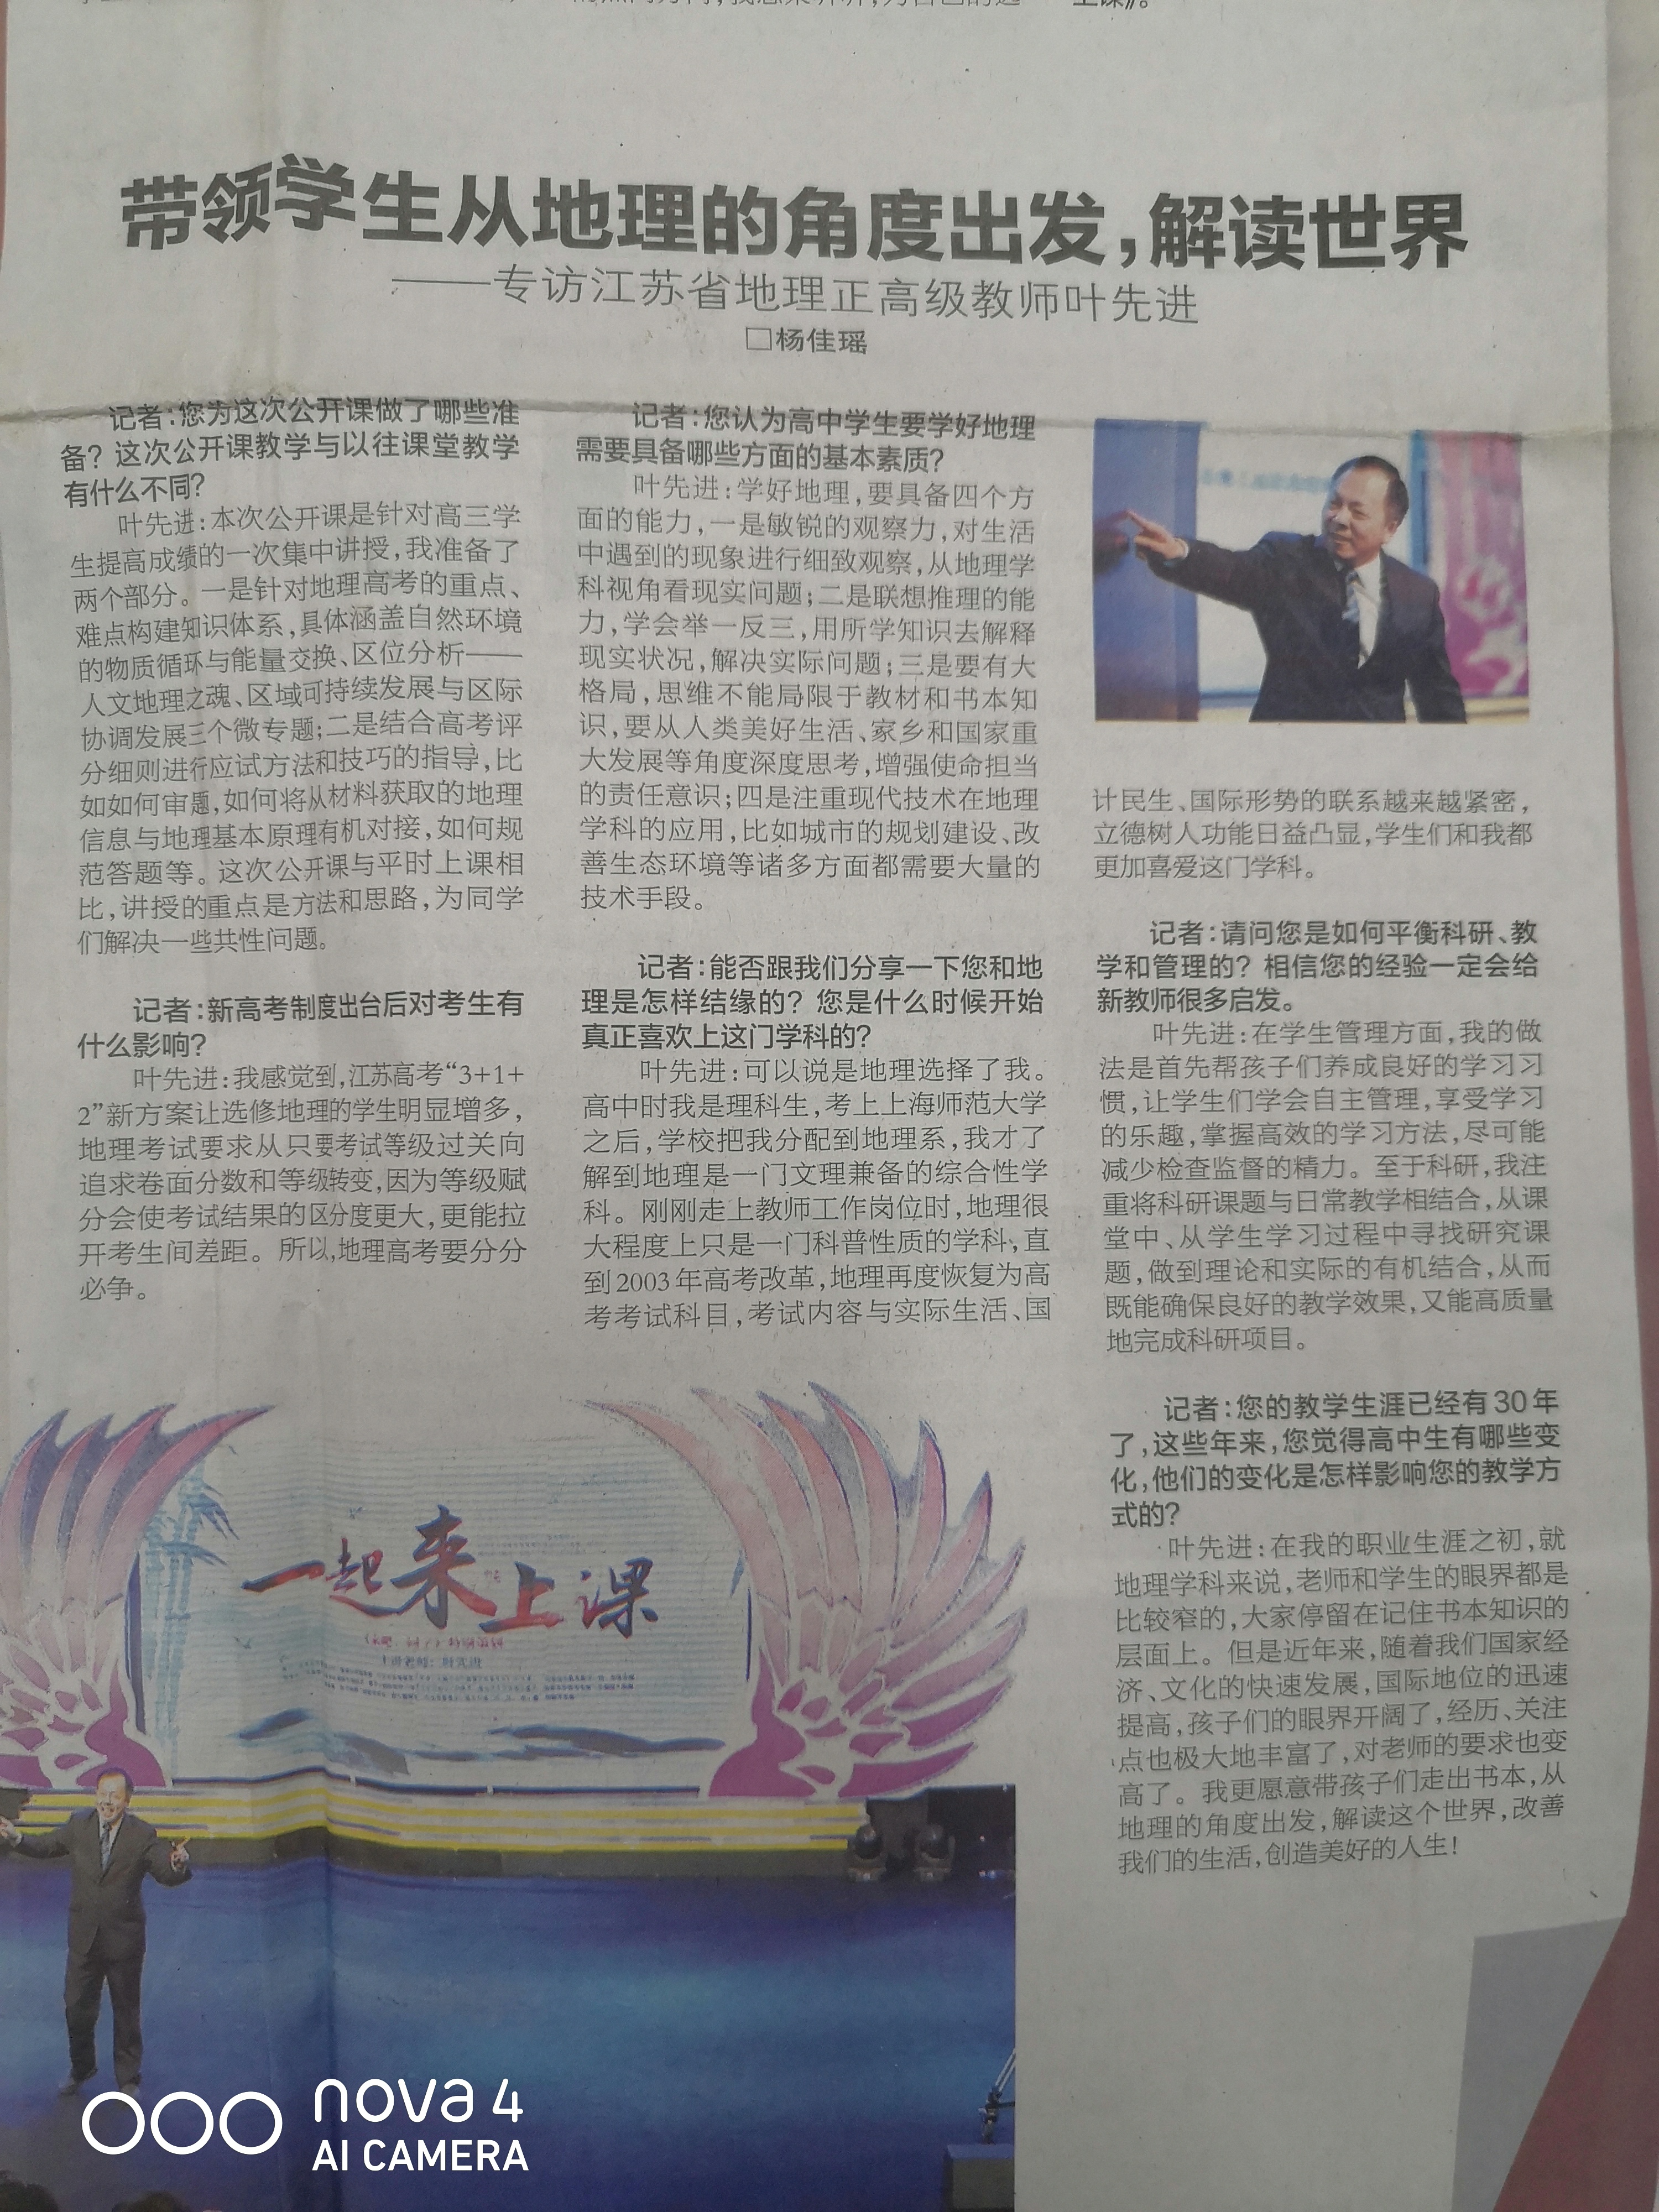 带领学生从地理的角度出发，解读世界
——专访江苏省地理正高级教师叶先进
□杨佳瑶
记者：您为这次公开课做了哪些准
备？这次公开课教学与以往课堂教学
有什么不同？
叶先进：本次公开课是针对高三学
生提高成绩的一次集中讲授，我准备了
两个部分。一是针对地理高考的重点、
难点构建知识体系，具体涵盖自然环境
的物质循环与能量交换、区位分析——
人文地理之魂、区域可持续发展与区际
协调发展三个微专题；二是结合高考评
分细则进行应试方法和技巧的指导，比
如如何审题，如何将从材料获取的地理
信息与地理基本原理有机对接，如何规
范答题等。这次公开课与平时上课相
比，讲授的重点是方法和思路，为同学
们解决一些共性问题。
记者：新高考制度出台后对考生有
什么影响？
叶先进：我感觉到，江苏高考“3+1+
2”新方案让选修地理的学生明显增多，
地理考试要求从只要考试等级过关向
追求卷面分数和等级转变，因为等级赋
分会使考试结果的区分度更大，更能拉
开考生间差距。所以，地理高考要分分
必争。
记者：您认为高中学生要学好地理
需要具备哪些方面的基本素质？
叶先进：学好地理，要具备四个方
面的能力，一是敏锐的观察力，对生活
中遇到的现象进行细致观察，从地理学
科视角看现实问题；二是联想推理的能
力，学会举一反三，用所学知识去解释
现实状况，解决实际问题；三是要有大
格局，思维不能局限于教材和书本知
识，要从人类美好生活、家乡和国家重
大发展等角度深度思考，增强使命担当
的责任意识；四是注重现代技术在地理
学科的应用，比如城市的规划建设、改
善生态环境等诸多方面都需要大量的
技术手段。
记者：能否跟我们分享一下您和地
理是怎样结缘的？您是什么时候开始
真正喜欢上这门学科的？
叶先进：可以说是地理选择了我。
高中时我是理科生，考上上海师范大学
之后，学校把我分配到地理系，我才了
解到地理是一门文理兼备的综合性学
科。刚刚走上教师工作岗位时，地理很
大程度上只是一门科普性质的学科，直
到2003年高考改革，地理再度恢复为高
考考试科目，考试内容与实际生活、国
计民生、国际形势的联系越来越紧密，
立德树人功能日益凸显，学生们和我都
更加喜爱这门学科。
记者：请问您是如何平衡科研、教
学和管理的？相信您的经验一定会给
新教师很多启发。
叶先进：在学生管理方面，我的做
法是首先帮孩子们养成良好的学习习
惯，让学生们学会自主管理，享受学习
的乐趣，掌握高效的学习方法，尽可能
减少检查监督的精力。至于科研，我注
重将科研课题与日常教学相结合，从课
堂中、从学生学习过程中寻找研究课
题，做到理论和实际的有机结合，从而
既能确保良好的教学效果，又能高质量
地完成科研项目。
记者：您的教学生涯已经有30年
了，这些年来，您觉得高中生有哪些变
化，他们的变化是怎样影响您的教学方
式的？
叶先进：在我的职业生涯之初，就
地理学科来说，老师和学生的眼界都是
比较窄的，大家停留在记住书本知识的
层面上。但是近年来，随着我们国家经
济、文化的快速发展，国际地位的迅速
提高，孩子们的眼界开阔了，经历、关注
点也极大地丰富了，对老师的要求也变
高了。我更愿意带孩子们走出书本，从
地理的角度出发，解读这个世界，改善
我们的生活，创造美好的人生！
一起来上课
nova 4
AI CAMERA